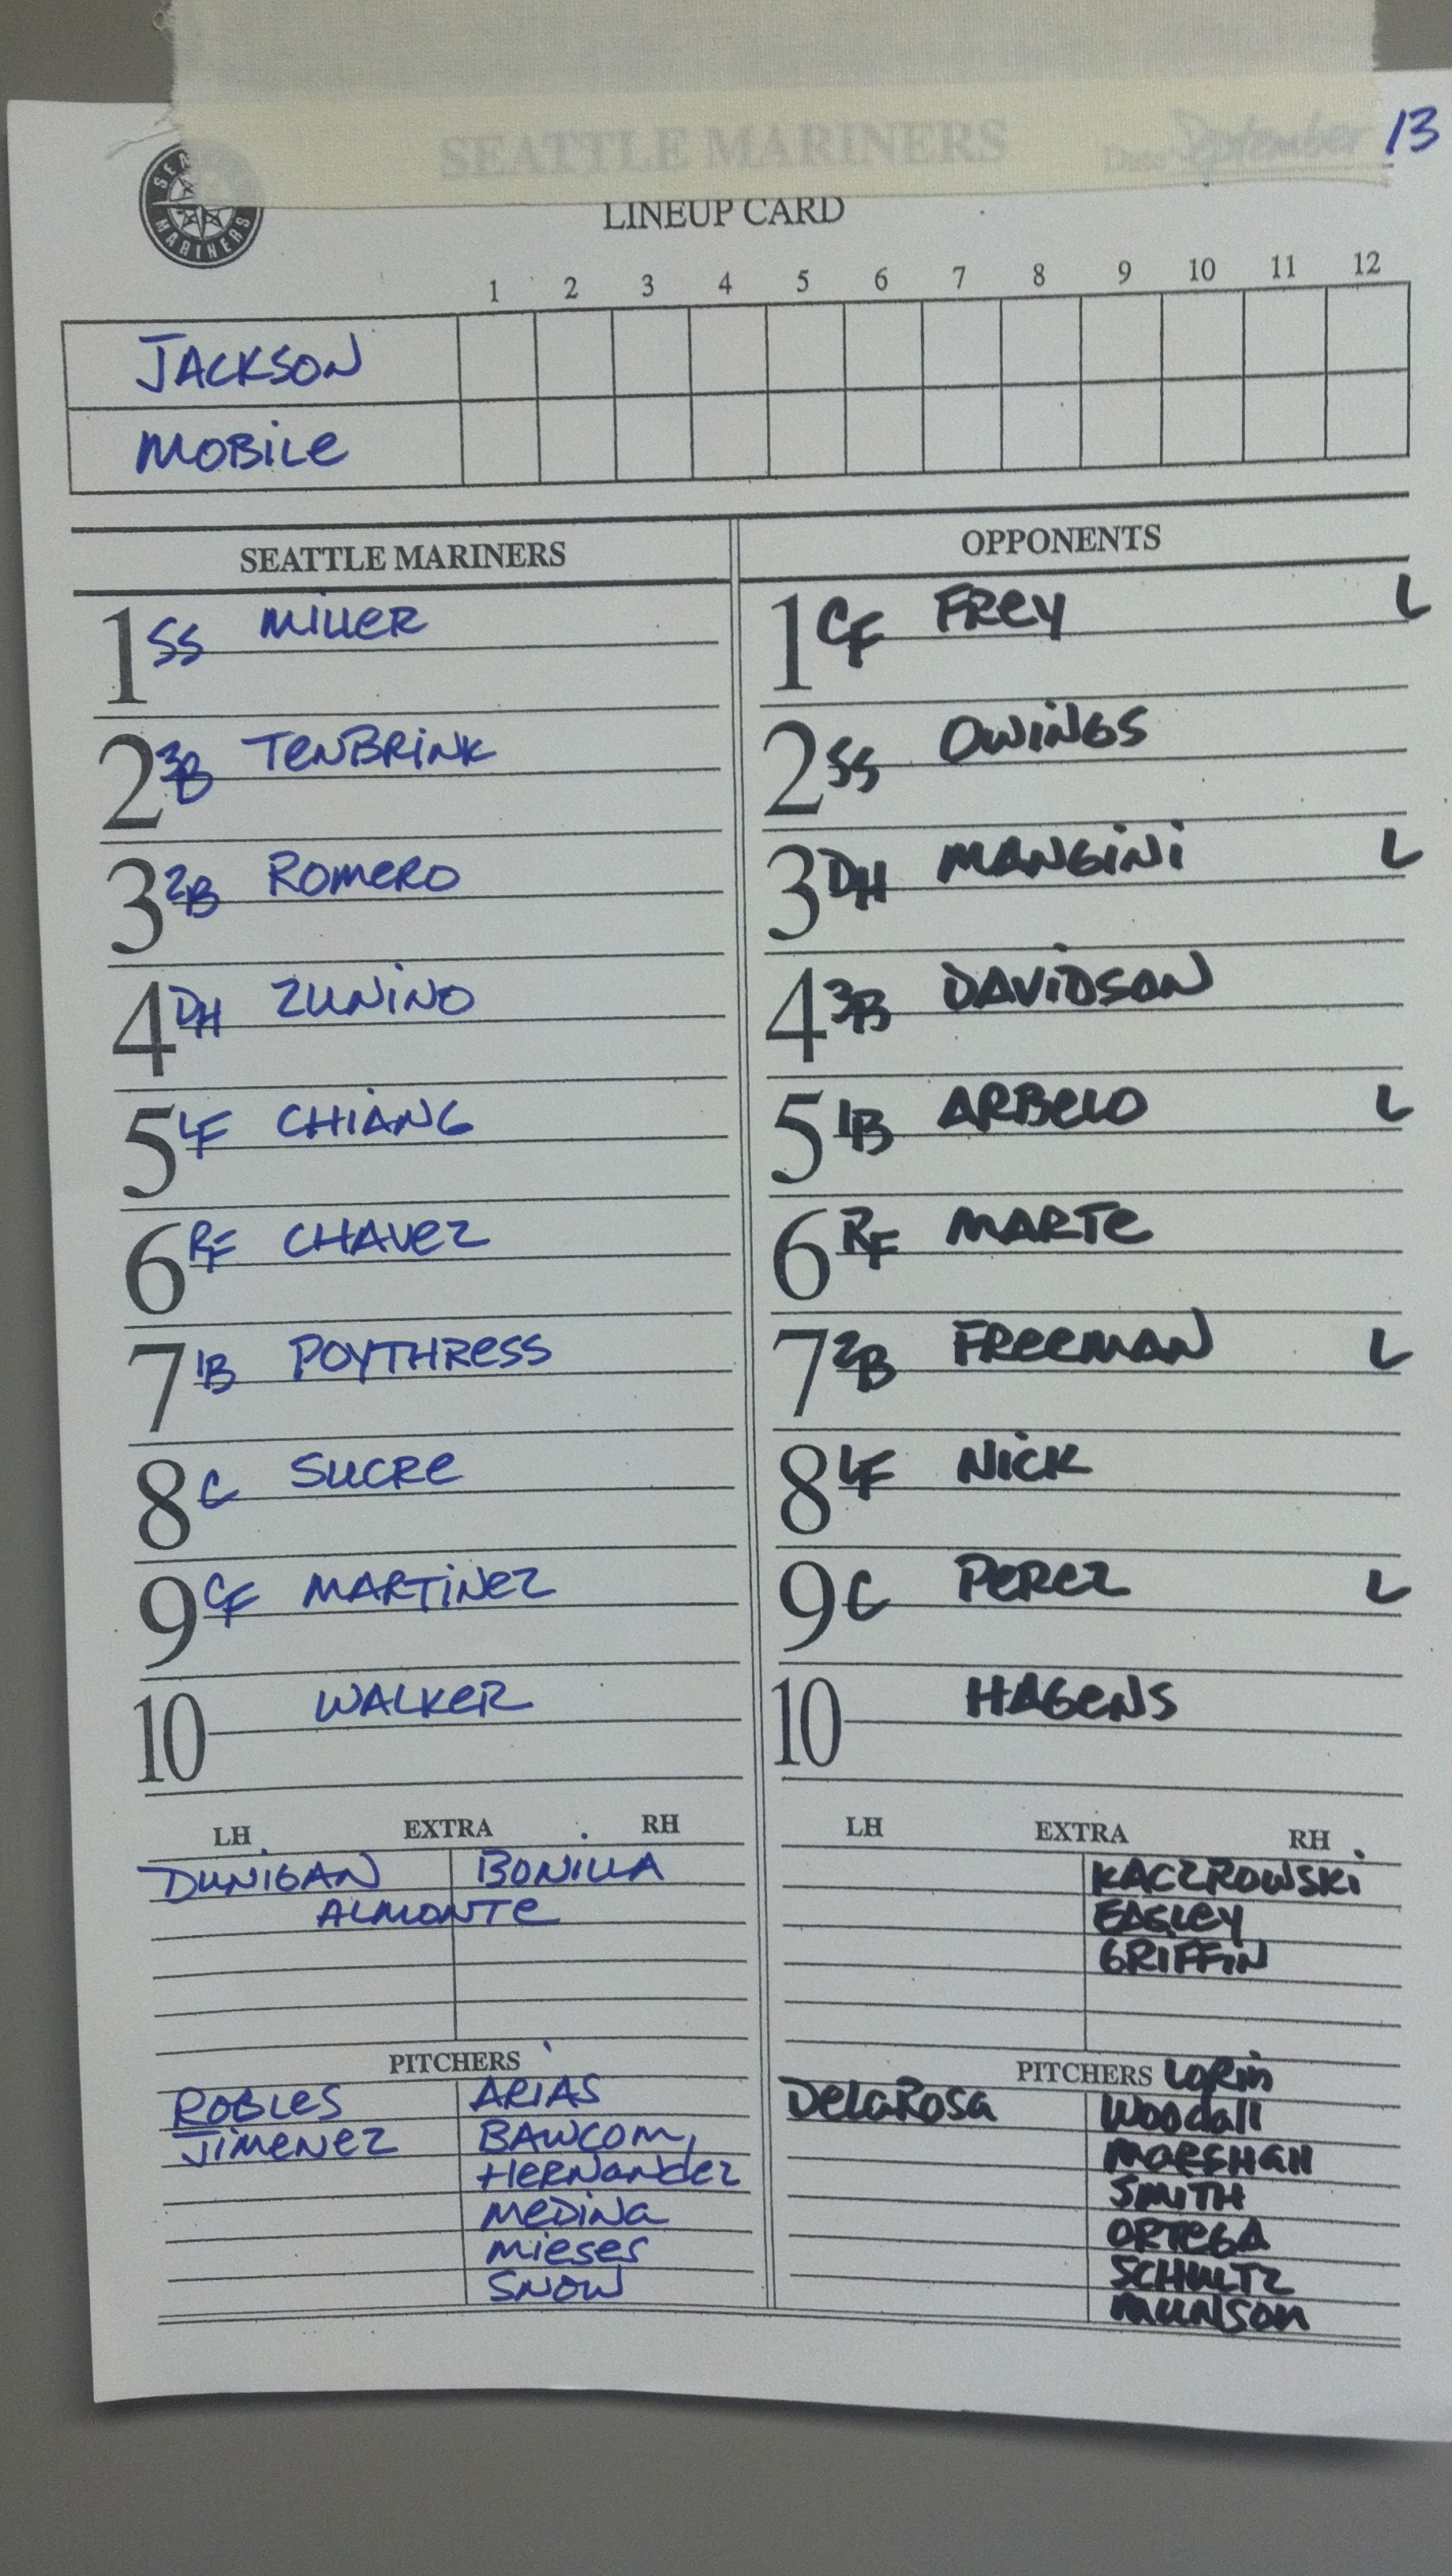 SEATTLE MARINERS
Date September 13
SEA
MARINERS
LINEUP CARD
1 2 3 4 5 6 7 8 9 10 11 12
JACKSON
MOBILE
SEATTLE MARINERS
1 SS MILLER
2 3B TENBRINK
3 2B ROMERO
4 DH ZUNINO
5 LF CHIANG
6 RF CHAVEZ
7 1B POYTHRESS
8 C SUCRE
9 CF MARTINEZ
10 WALKER
LH EXTRA RH
DUNIGAN BONILLA
ALMONTE
PITCHERS
ROBLES ARIAS
JIMENEZ BAWCOM
HERNANDEZ
MEDINA
MIESES
SNOW
OPPONENTS
1 CF FREY L
2 SS OWINGS
3 DH MANGINI L
4 3B DAVIDSON
5 1B ARBELO L
6 RF MARTE
7 2B FREEMAN L
8 LF NICK
9 C PEREZ L
10 HAGENS
LH EXTRA RH
KACZROWSKI
EASLEY
GRIFFIN
PITCHERS LORIN
DELAROSA WOODALL
MARSHALL
SMITH
ORTEGA
SCHULTZ
MUNSON